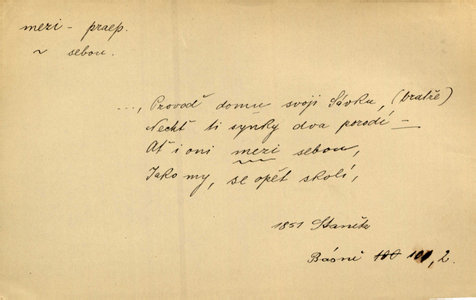 mezi - praep.
~ sebou.
..., Provoď domu svoji Slávku, (bratře)
Nechť ti synky dva porodí —
Ať i oni mezi sebou,
Jako my, se opět školí,
1851 Staněk
Básně 100 101, 2.